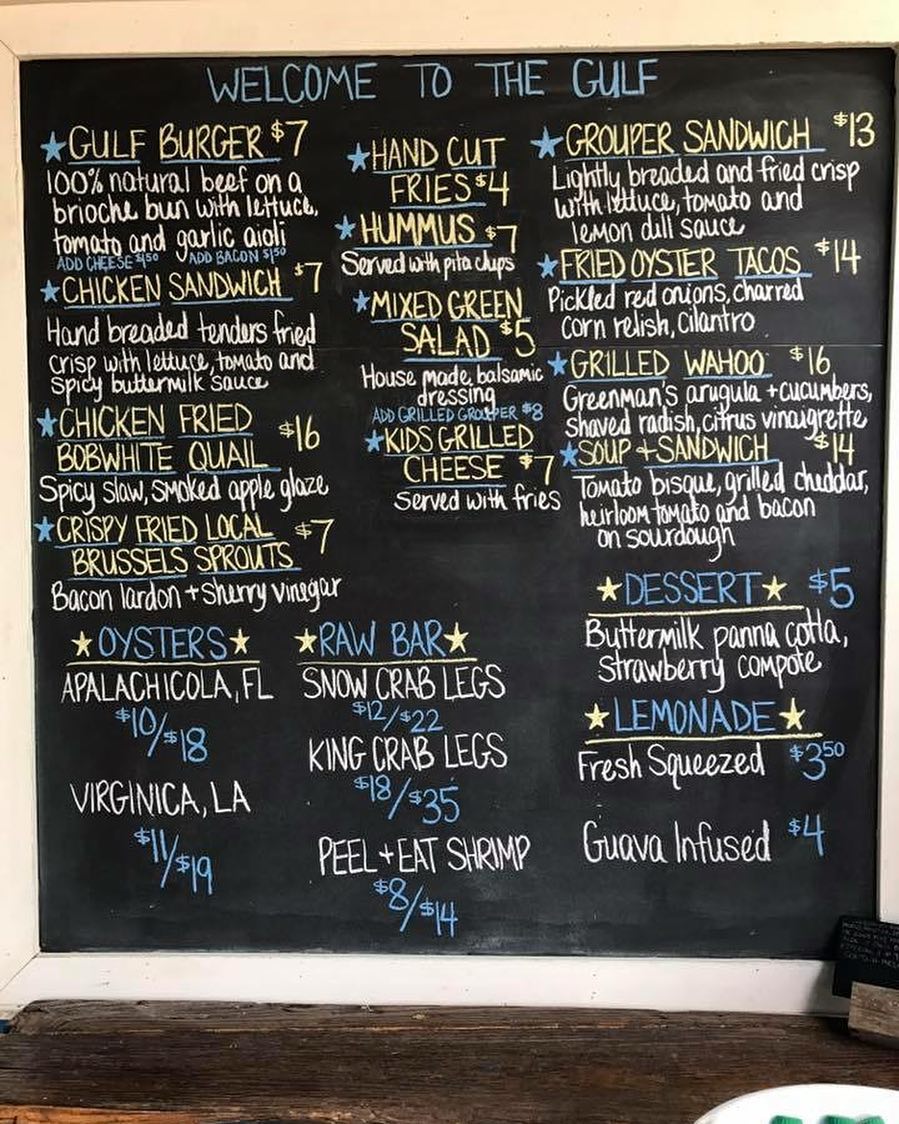 WELCOME TO THE GULF
★GULF BURGER $7
100% natural beef on a
brioche bun with lettuce,
tomato and garlic aioli
ADD CHEESE $1.50 ADD BACON $1.50
★CHICKEN SANDWICH $7
Hand breaded tenders fried
crisp with lettuce, tomato and
spicy buttermilk sauce
★CHICKEN FRIED
BOBWHITE QUAIL $16
Spicy slaw, smoked apple glaze
★CRISPY FRIED LOCAL
BRUSSELS SPROUTS $7
Bacon lardon + Sherry vinegar
★HAND CUT
FRIES $4
★HUMMUS $7
Served with pita chips
★MIXED GREEN
SALAD $5
House made balsamic
dressing
ADD GRILLED GROUPER $8
★KIDS GRILLED
CHEESE $7
Served with fries
★GROUPER SANDWICH $13
Lightly breaded and fried crisp
with lettuce, tomato and
lemon dill sauce
★FRIED OYSTER TACOS $14
Pickled red onions, charred
corn relish, cilantro
★GRILLED WAHOO $16
Greenman's arugula + cucumbers,
shaved radish, citrus vinaigrette
★SOUP + SANDWICH $14
Tomato bisque, grilled cheddar,
heirloom tomato and bacon
on sourdough
★OYSTERS★
APALACHICOLA, FL
$10/$18
VIRGINICA, LA
$11/$19
★RAW BAR★
SNOW CRAB LEGS
$12/$22
KING CRAB LEGS
$18/$35
PEEL + EAT SHRIMP
$8/$14
★DESSERT★ $5
Buttermilk panna cotta,
Strawberry compote
★LEMONADE★
Fresh Squeezed $3.50
Guava Infused $4